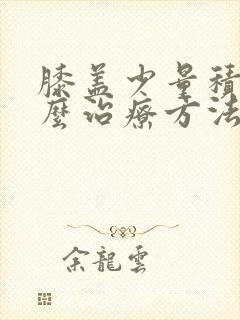 膝盖少量積
麼治療方法
余龍雲